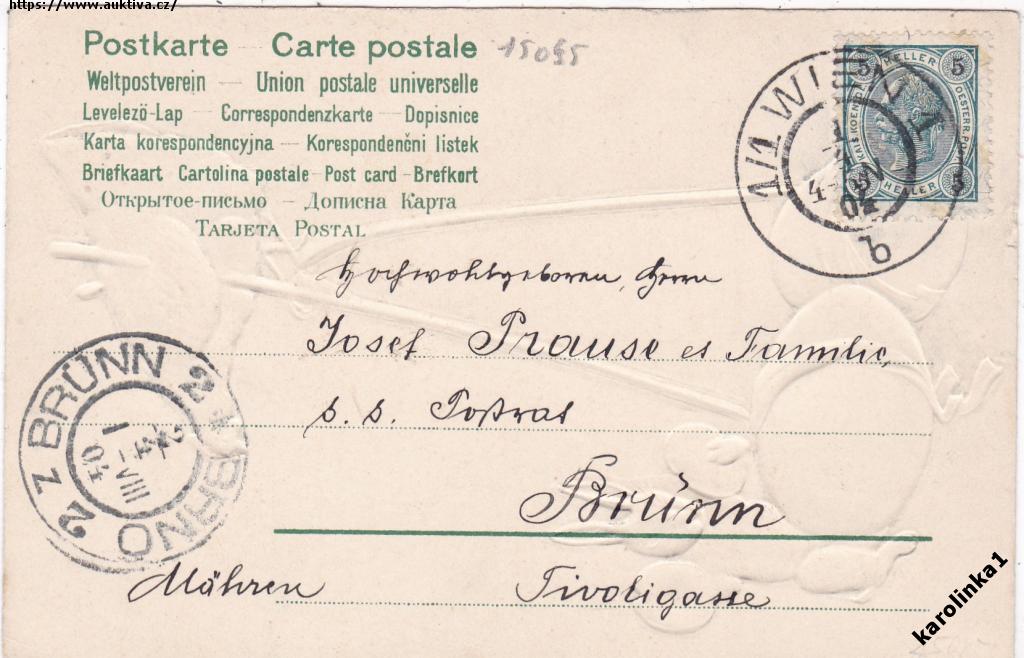 https://www.auktiva.cz/
Postkarte — Carte postale
15095
Weltpostverein — Union postale universelle
Levelező-Lap — Correspondenzkarte — Dopisnice
Karta korespondencyjna — Korespondenčni listek
Briefkaart Cartolina postale - Post card - Brefkort
Открытое-письмо — Дописна Карта
Tarjeta Postal
5 HELLER 5
KAIS. KOEN. OESTERR. POST
5 HELLER 5
1/1 WIEN 1
04
b
Hochwohlgeboren, Herrn
Josef Prause et Familie,
k. k. Postrat
Brünn
Mähren Tivoligasse
2 Z BRÜNN 2 Z
BRNO
VIII
04
karolinka1